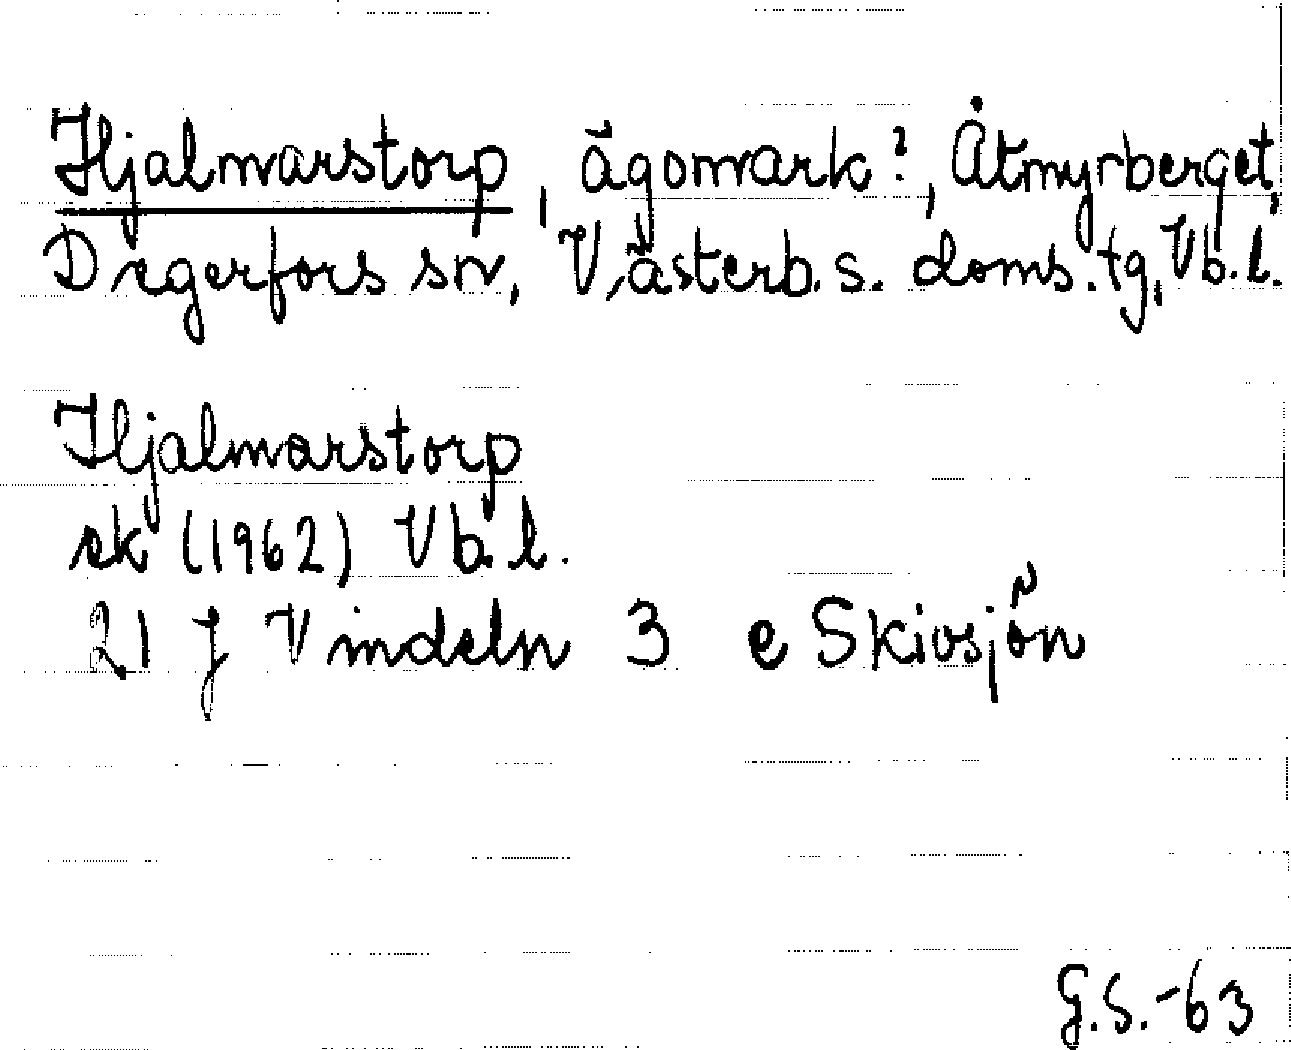 Hjalmarstorp, ägomark?, Åtmyrberget,
Degerfors sn, Västerb. s. doms. tg, Vb. l.
Hjalmarstorp
ek (1962) Vb. l.
21 J Vindeln 3 e Skivsjön
G.S.-63